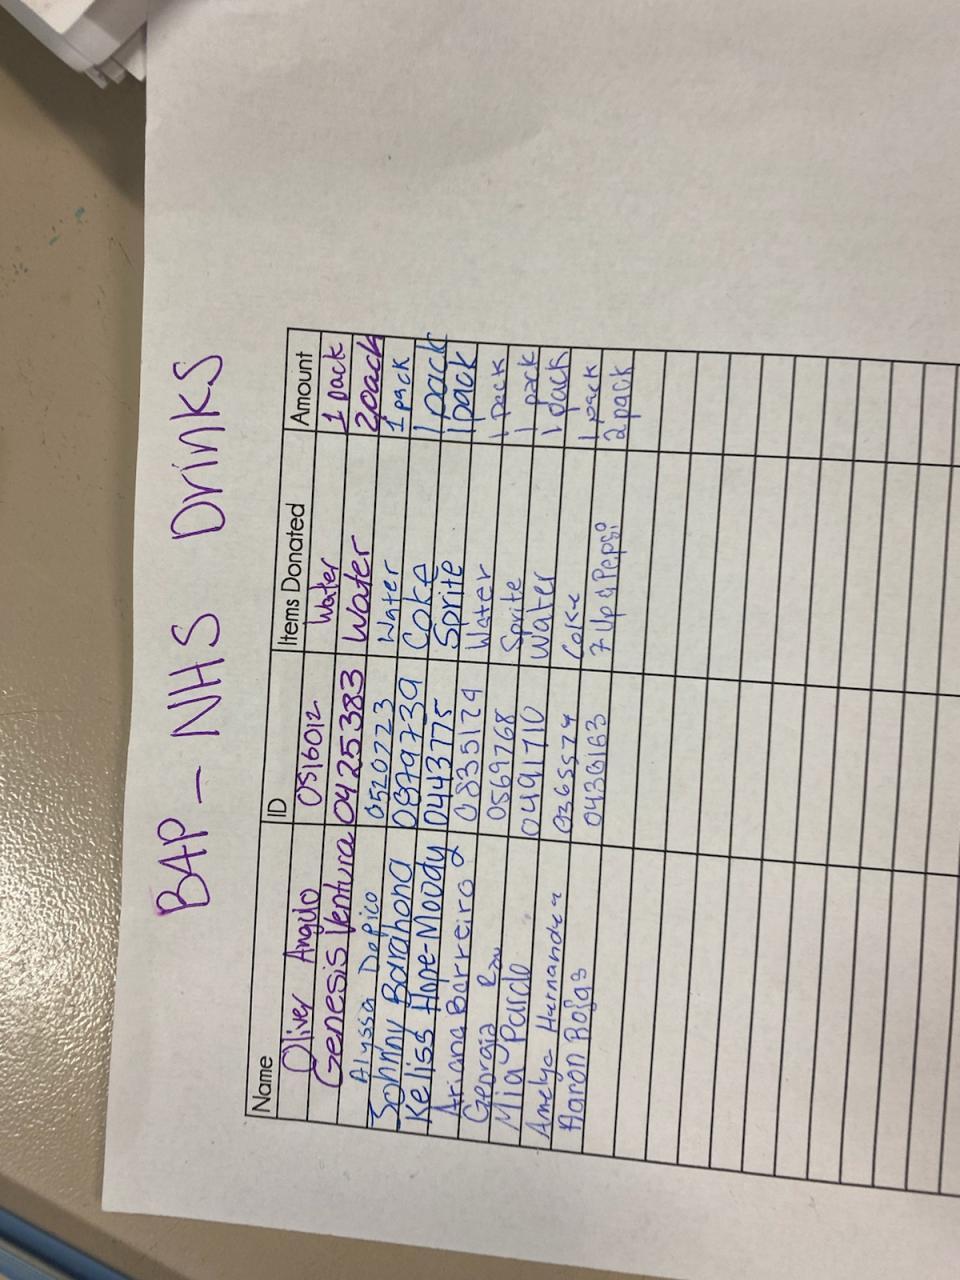 BAP - NHS Drinks
Name ID Items Donated Amount
Oliver Angulo 0516012 Water 1 pack
Genesis Ventura 0425383 Water 2 pack
Alyssa Dopico 0520223 Water 1 pack
Johnny Barahona 0879739 Coke 1 pack
Keliss Hope-Moody 0443775 Sprite 1 pack
Ariana Barreiro 0335174 Water 1 pack
Georgia 0569768 Sprite 1 pack
Mia Pardo 0491710 Water 1 pack
Amelya Hernandez 0365574 Coke 1 pack
Aaron Rojas 0436163 7 Up & Pepsi 2 pack